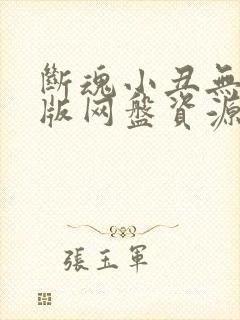 斷魂小丑無
版网盤資源
張玉軍